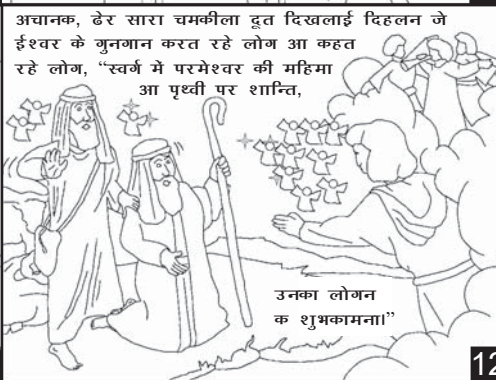 अचानक, ढेर सारा चमकीला दूत दिखलाई दिहलन जे
ईश्वर के गुनगान करत रहे लोग आ कहत
रहे लोग, “स्वर्ग में परमेश्वर की महिमा
आ पृथ्वी पर शान्ति,
उनका लोगन
क शुभकामना।”
12